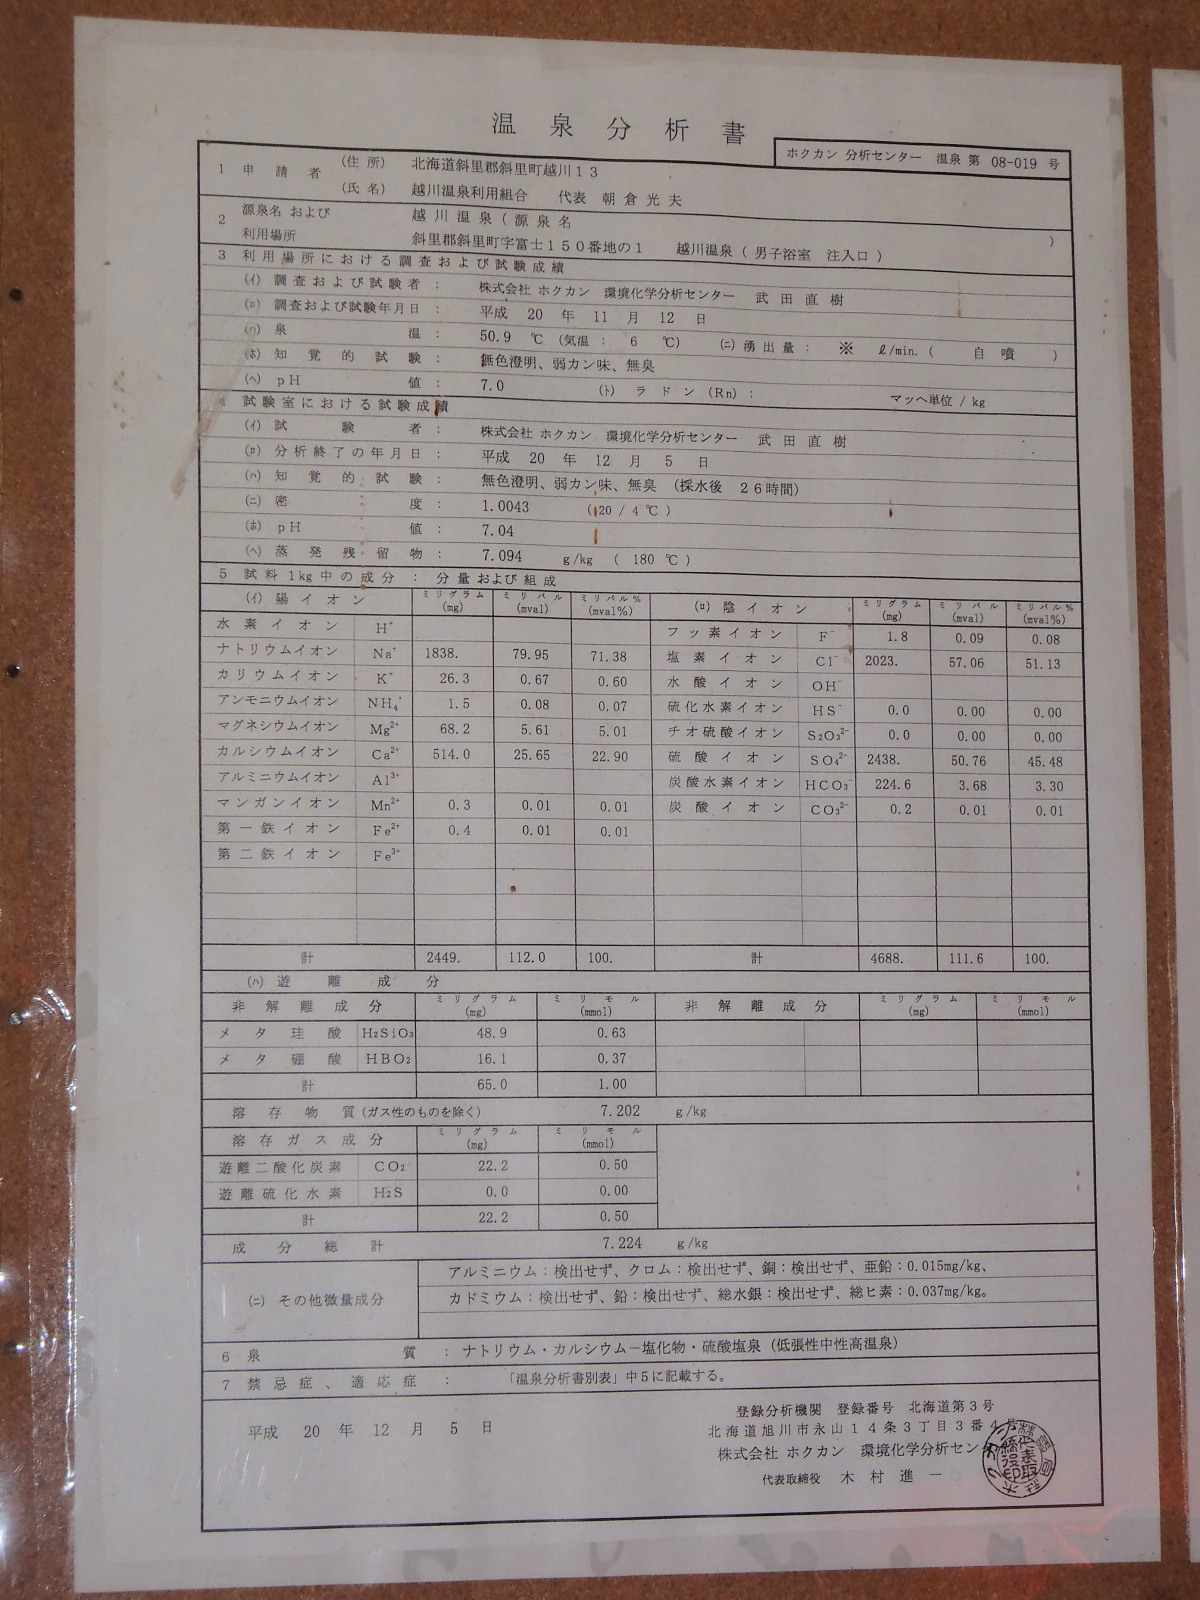 温泉分析書
ホクカン 分析センター 温泉 第 08-019 号
1 申請者 (住所) 北海道斜里郡斜里町越川13
(氏名) 越川温泉利用組合 代表 朝倉光夫
2 源泉名 および 利用場所 越川温泉 ( 源泉名 )
斜里郡斜里町字富士150番地の1 越川温泉 ( 男子浴室 注入口 )
3 利用場所における調査および試験成績
(イ) 調査および試験者 : 株式会社 ホクカン 環境化学分析センター 武田直樹
(ロ) 調査および試験年月日 : 平成 20 年 11 月 12 日
(ハ) 泉温 : 50.9 ℃ (気温 : 6 ℃) (ニ) 湧出量 : ※ ℓ/min. ( 自噴 )
(ホ) 知覚的試験 : 無色澄明、弱カン味、無臭
(ヘ) pH値 : 7.0 (ト) ラドン (Rn) : マッヘ単位 / kg
4 試験室における試験成績
(イ) 試験者 : 株式会社 ホクカン 環境化学分析センター 武田直樹
(ロ) 分析終了の年月日 : 平成 20 年 12 月 5 日
(ハ) 知覚的試験 : 無色澄明、弱カン味、無臭 (採水後 26時間)
(ニ) 密度 : 1.0043 ( 20 / 4 ℃ )
(ホ) pH値 : 7.04
(ヘ) 蒸発残留物 : 7.094 g/kg ( 180 ℃ )
5 試料1kg中の成分 : 分量および組成
(イ) 陽イオン ミリグラム (mg) ミリバル (mval) ミリバル% (mval%) (ロ) 陰イオン ミリグラム (mg) ミリバル (mval) ミリバル% (mval%)
水素イオン H⁺ フッ素イオン F⁻ 1.8 0.09 0.08
ナトリウムイオン Na⁺ 1838. 79.95 71.38 塩素イオン Cl⁻ 2023. 57.06 51.13
カリウムイオン K⁺ 26.3 0.67 0.60 水酸イオン OH⁻
アンモニウムイオン NH₄⁺ 1.5 0.08 0.07 硫化水素イオン HS⁻ 0.0 0.00 0.00
マグネシウムイオン Mg²⁺ 68.2 5.61 5.01 チオ硫酸イオン S₂O₃²⁻ 0.0 0.00 0.00
カルシウムイオン Ca²⁺ 514.0 25.65 22.90 硫酸イオン SO₄²⁻ 2438. 50.76 45.48
アルミニウムイオン Al³⁺ 炭酸水素イオン HCO₃⁻ 224.6 3.68 3.30
マンガンイオン Mn²⁺ 0.3 0.01 0.01 炭酸イオン CO₃²⁻ 0.2 0.01 0.01
第一鉄イオン Fe²⁺ 0.4 0.01 0.01
第二鉄イオン Fe³⁺
計 2449. 112.0 100. 計 4688. 111.6 100.
(ハ) 遊離成分
非解離成分 ミリグラム (mg) ミリモル (mmol) 非解離成分 ミリグラム (mg) ミリモル (mmol)
メタ珪酸 H₂SiO₃ 48.9 0.63
メタ硼酸 HBO₂ 16.1 0.37
計 65.0 1.00
溶存物質 (ガス性のものを除く) 7.202 g/kg
溶存ガス成分 ミリグラム (mg) ミリモル (mmol)
遊離二酸化炭素 CO₂ 22.2 0.50
遊離硫化水素 H₂S 0.0 0.00
計 22.2 0.50
成分総計 7.224 g/kg
(ニ) その他微量成分 アルミニウム:検出せず、クロム:検出せず、銅:検出せず、亜鉛:0.015mg/kg、
カドミウム:検出せず、鉛:検出せず、総水銀:検出せず、総ヒ素:0.037mg/kg。
6 泉質 : ナトリウム・カルシウム−塩化物・硫酸塩泉 (低張性中性高温泉)
7 禁忌症、適応症 : 「温泉分析書別表」中5に記載する。
平成 20 年 12 月 5 日
登録分析機関 登録番号 北海道第3号
北海道旭川市永山14条3丁目3番4号
株式会社 ホクカン 環境化学分析セン
代表取締役 木村進一